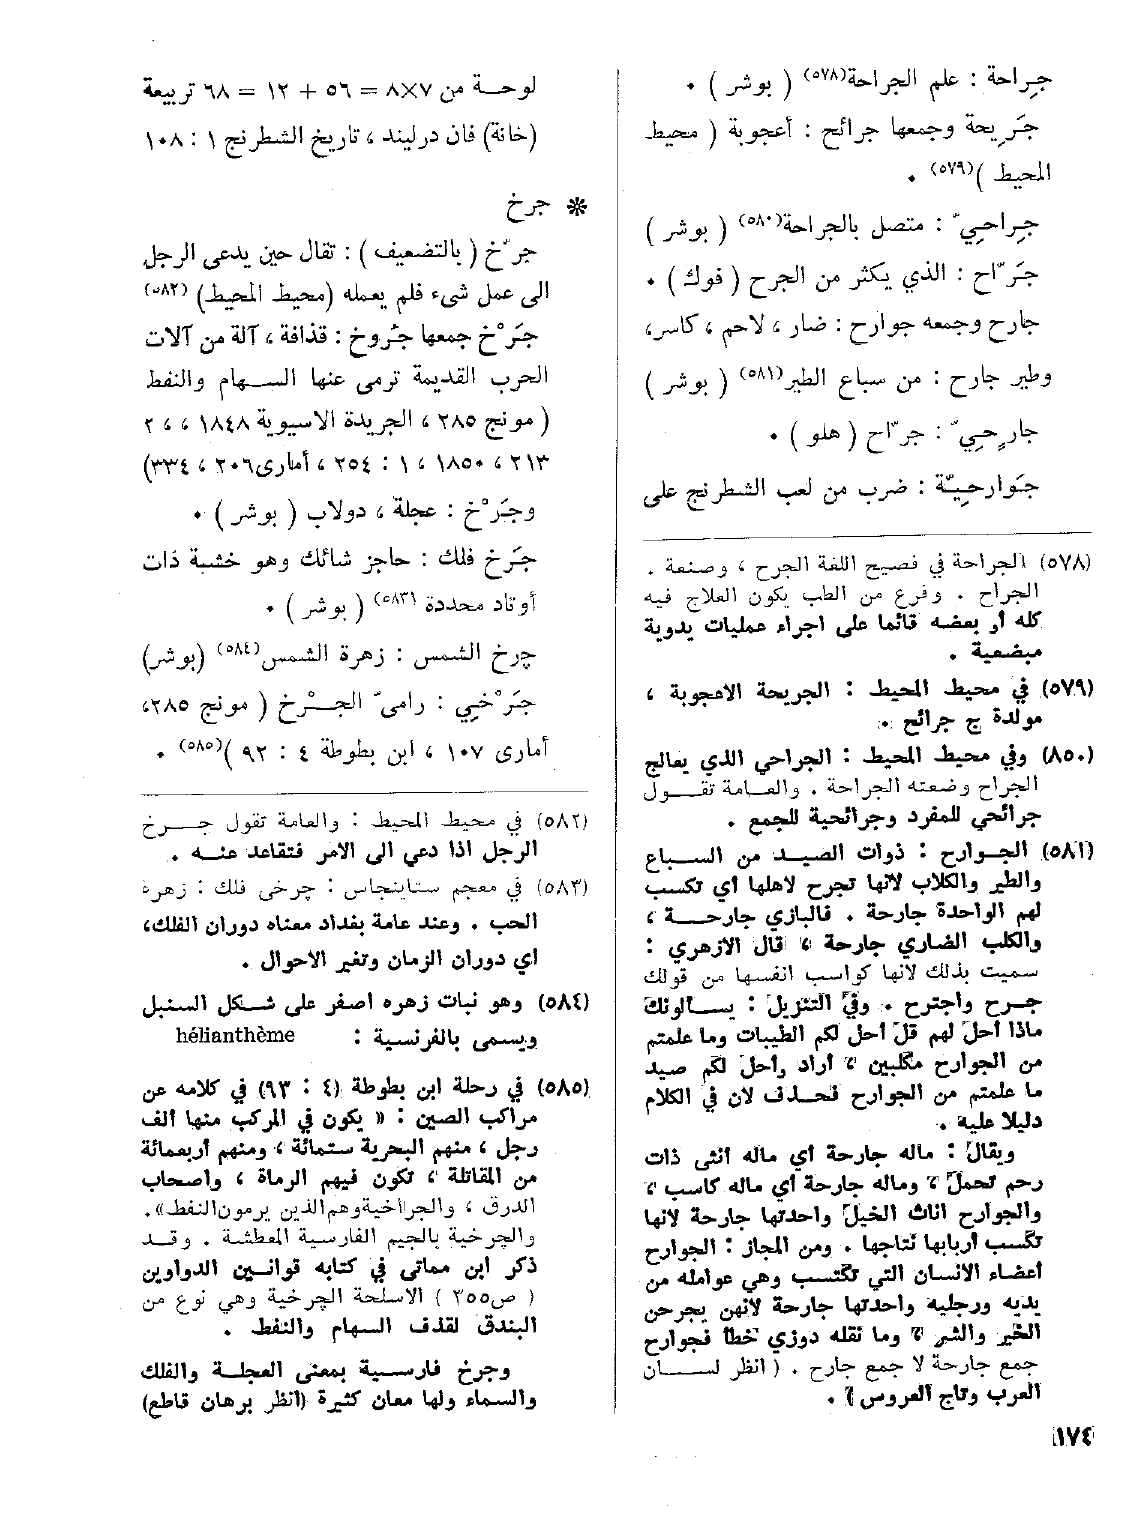 جِراحة : علم الجراحة(٥٧٨) ( بوشر ) .
جَريحة وجمعها جرائح : أعجوبة ( محيط
المحيط )(٥٧٩) .
جِراحِيّ : متصل بالجراحة(٥٨٠) ( بوشر )
جَرّاح : الذي يكثر من الجرح ( فوك ) .
جارح وجمعه جوارح : ضار ، لاحم ، كاسر،
وطير جارح : من سباع الطير(٥٨١) ( بوشر )
جارِحِيّ : جرّاح ( هلو ) .
جَوارحِيّة : ضرب من لعب الشطرنج على
(٥٧٨) الجراحة في فصيح اللغة الجرح ، وصنعة .
الجراح . وفرع من الطب يكون العلاج فيه
كله أو بعضه قائما على اجراء عمليات يدوية
مبضعية .
(٥٧٩) في محيط المحيط : الجريحة الاعجوبة ،
مولدة ج جرائح .
(٨٥٠) وفي محيط المحيط : الجراحي الذي يعالج
الجراح وضعته الجراحة . والعامة تقول
جرائحي للمفرد وجرائحية للجمع .
(٥٨١) الجوارح : ذوات الصيد من السباع
والطير والكلاب لانها تجرح لاهلها أي تكسب
لهم الواحدة جارحة . فالبازي جارحة ،
والكلب الضاري جارحة ، قال الازهري :
سميت بذلك لانها كواسب انفسها من قولك
جرح واجترح . وفي التنزيل : يسالونك
ماذا أحل لهم قل أحل لكم الطيبات وما علمتم
من الجوارح مكلبين ، أراد وأحل لكم صيد
ما علمتم من الجوارح فحذف لان في الكلام
دليلا عليه .
ويقال : ماله جارحة أي ماله انثى ذات
رحم تحمل ، وماله جارحة أي ماله كاسب ،
والجوارح اناث الخيل واحدتها جارحة لانها
تكسب أربابها نتاجها . ومن المجاز : الجوارح
أعضاء الانسان التي تكتسب وهي عوامله من
يديه ورجليه واحدتها جارحة لانهن يجرحن
الخير والشر ، وما نقله دوزي خطأ فجوارح
جمع جارحة لا جمع جارح . ( انظر لسان
العرب وتاج العروس ) .
١٧٤
لوحة من ٧×٨ = ٥٦ + ١٢ = ٦٨ تربيعة
(خانة) فان درليند ، تاريخ الشطرنج ١ : ١٠٨
* جرخ
جرّخ ( بالتضعيف ) : تقال حين يدعى الرجل
الى عمل شيء فلم يعمله (محيط المحيط) (٥٨٢)
جَرْخ جمعها جُروخ : قذافة ، آلة من آلات
الحرب القديمة ترمى عنها السهام والنفط
( مونج ٢٨٥ ، الجريدة الاسيوية ١٨٤٨ ، ، ٢
٢١٣ ، ١٨٥٠ ، ١ : ٢٥٤ ، أماري٢٠٦ ، ٣٣٤)
وجَرْخ : عجلة ، دولاب ( بوشر ) .
جَرخ فلك : حاجز شائك وهو خشبة ذات
أوتاد محددة (٥٨٣) ( بوشر ) .
چرخ الشمس : زهرة الشمس(٥٨٤) (بوشر)
جَرْخِي : رامي الجرْخ ( مونج ٢٨٥،
أماري ١٠٧ ، ابن بطوطة ٤ : ٩٢ )(٥٨٥) .
(٥٨٢) في محيط المحيط : والعامة تقول جرخ
الرجل اذا دعي الى الامر فتقاعد عنه .
(٥٨٣) في معجم ستاينجاس : چرخى فلك : زهرة
الحب . وعند عامة بغداد معناه دوران الفلك،
اي دوران الزمان وتغير الاحوال .
(٥٨٤) وهو نبات زهره اصفر على شكل السنبل
ويسمى بالفرنسية : hélianthème
(٥٨٥) في رحلة ابن بطوطة (٤ : ٩٣) في كلامه عن
مراكب الصين : « يكون في المركب منها الف
رجل ، منهم البحرية ستمائة ، ومنهم أربعمائة
من المقاتلة ، تكون فيهم الرماة ، واصحاب
الدرق ، والجراخية وهم الذين يرمون النفط».
والچرخية بالجيم الفارسية المعطشة . وقد
ذكر ابن مماتي في كتابه قوانين الدواوين
( ص٣٥٥ ) الاسلحة الچرخية وهي نوع من
البندق لقذف السهام والنفط .
وجرخ فارسية بمعنى العجلة والفلك
والسماء ولها معان كثيرة (انظر برهان قاطع)